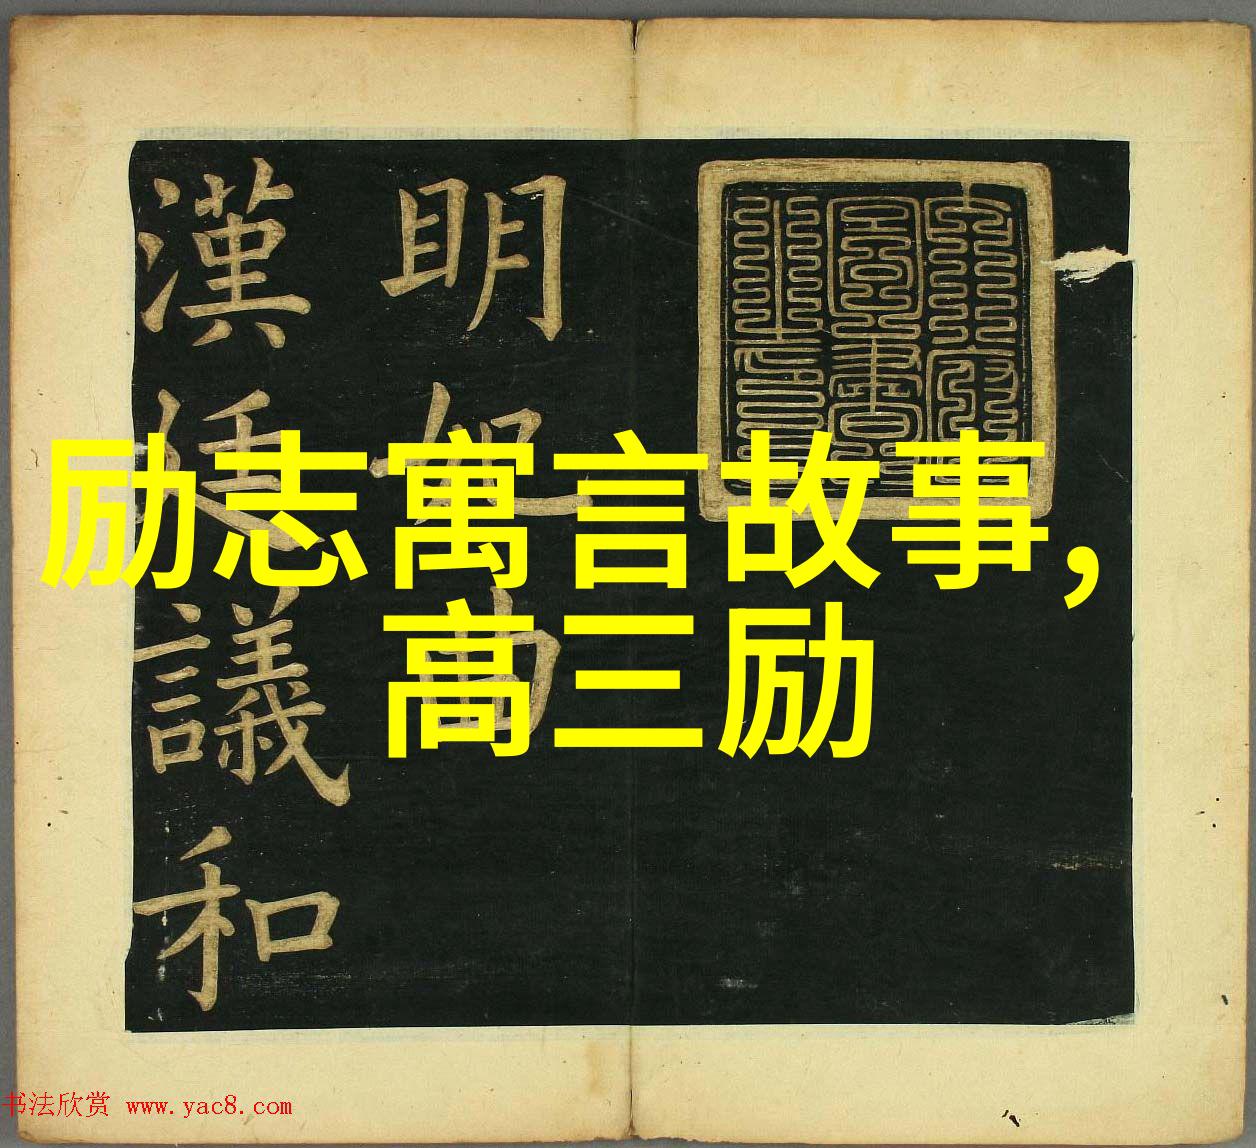 明妃曲
漢廷議和
励志寓言故事,
高三励
书法欣赏 www.yac8.com